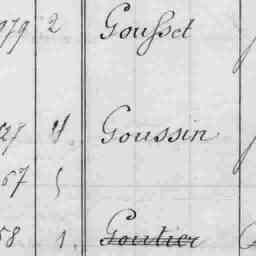 979 2 Gousset
4 Goussin
67 5
58 1. Goutier